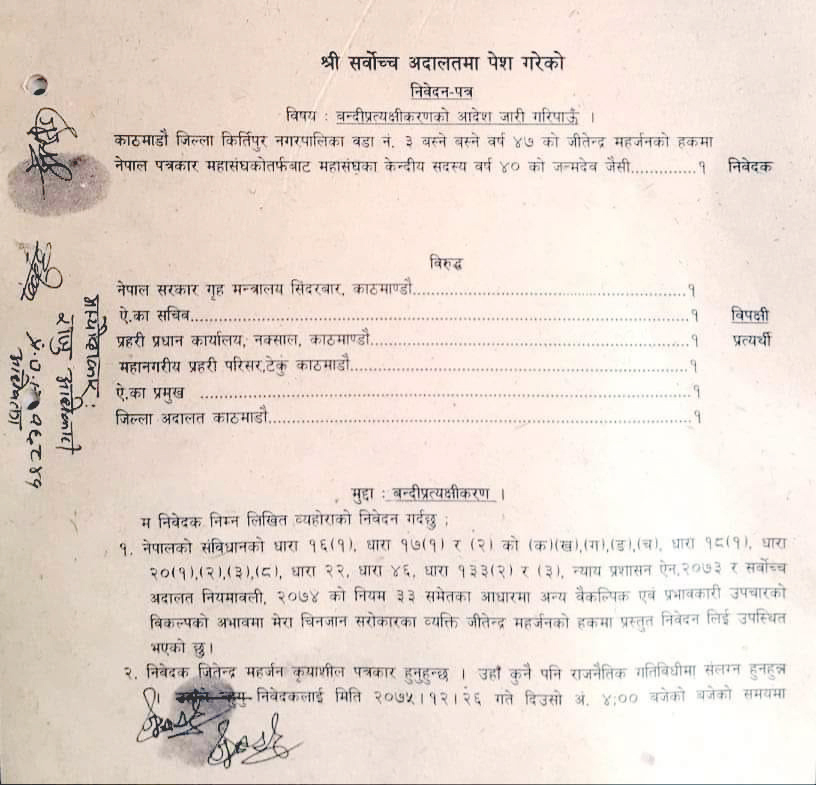 श्री सर्वोच्च अदालतमा पेश गरेको
निवेदन-पत्र
विषय : बन्दीप्रत्यक्षीकरणको आदेश जारी गरिपाऊँ ।
काठमाडौ जिल्ला किर्तिपुर नगरपालिका वडा नं. ३ बस्ने बस्ने वर्ष ४७ को जीतेन्द्र महर्जनको हकमा
नेपाल पत्रकार महासंघकोतर्फबाट महासंघका केन्दीय सदस्य वर्ष ४० को जन्मदेव जैसी..............१ निवेदक
विरुद्ध
नेपाल सरकार गृह मन्त्रालय सिंदरबार, काठमाण्डौ..........................................१
ऐ.का सचिब..........................................१ विपक्षी
प्रहरी प्रधान कार्यालय, नक्साल, काठमाण्डौ..........................................१ प्रत्यर्थी
महानगरीय प्रहरी परिसर,टेकु काठमाडौ..........................................१
ऐ.का प्रमुख ..........................................१
जिल्ला अदालत काठमाडौ..........................................१
मुद्दा : बन्दीप्रत्यक्षीकरण ।
म निवेदक निम्न लिखित व्यहोराको निवेदन गर्दछु ;
१. नेपालको संविधानको धारा १६(१), धारा १७(१) र (२) को (क)(ख),(ग),(ङ),(च), धारा १८(१), धारा
२०(१),(२),(३),(८), धारा २२, धारा ४६, धारा १३३(२) र (३), न्याय प्रशासन ऐन,२०७३ र सर्वोच्च
अदालत नियमावली, २०७४ को नियम ३३ समेतका आधारमा अन्य वैकल्पिक एवं प्रभावकारी उपचारको
बिकल्पको अभावमा मेरा चिनजान सरोकारका व्यक्ति जीतेन्द्र महर्जनको हकमा प्रस्तुत निवेदन लिई उपस्थित
भएको छु।
२. निवेदक जितेन्द्र महर्जन कृयाशील पत्रकार हुनुहुन्छ । उहाँ कुनै पनि राजनैतिक गतिविधीमा संलग्न हुनहुन्न
। निवेदकलाई मिति २०७५।१२।२६ गते दिउसो अं. ४;०० बजेको बजेको समयमा